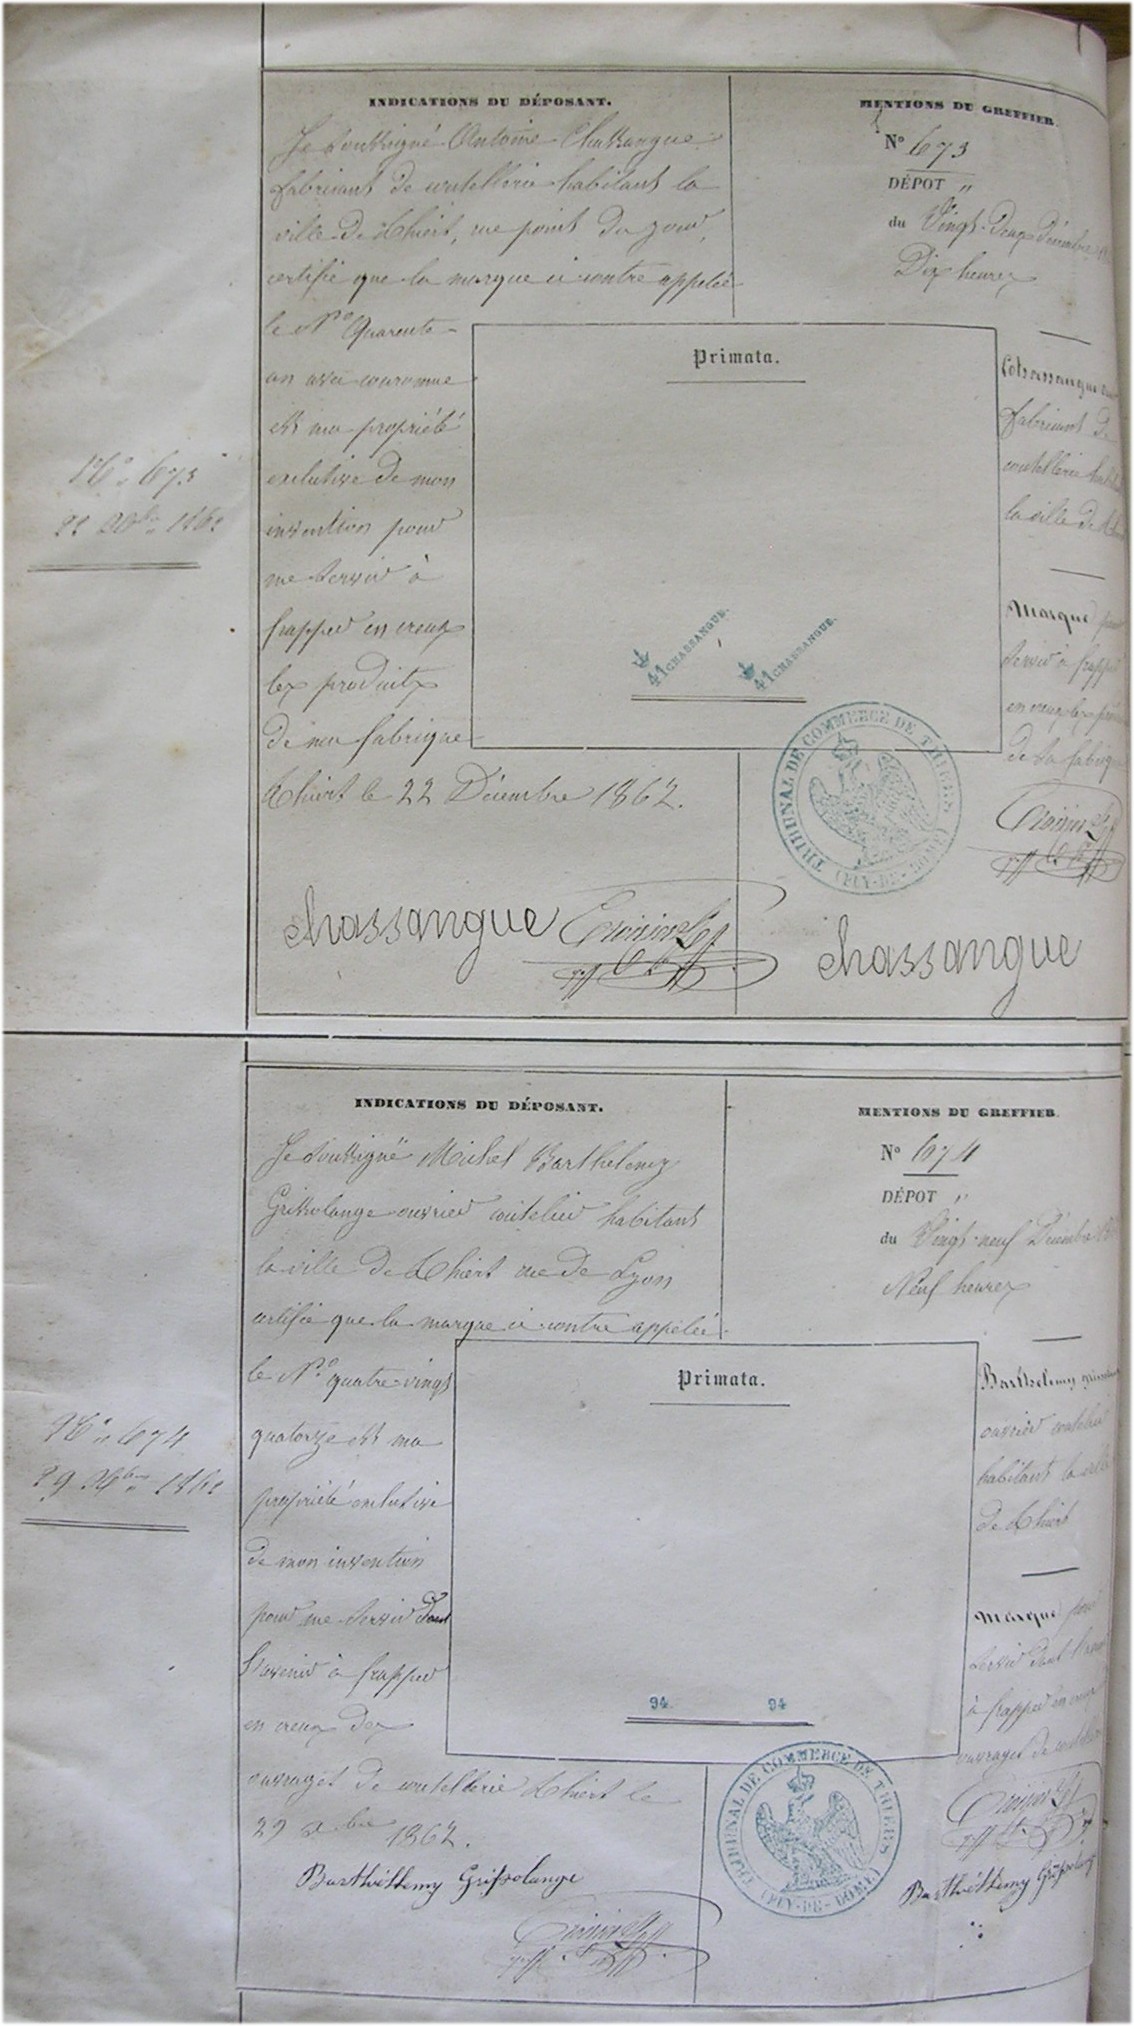 INDICATIONS DU DÉPOSANT.
Je soussigné Antoine Chassangue
fabricant de coutellerie habitant la
ville de Thiers, rue point du jour,
certifie que la marque ci contre appelée
le N° Quarente
un avec couronne
est ma propriété
exclusive de mon
invention pour
me servir à
frapper en creux
les produits
de ma fabrique
Thiers le 22 Décembre 1862.
chassangue
MENTIONS DU GREFFIER.
N° 673
DÉPOT "
du Vingt-Deux Décembre
Dix heures
Primata.
41 CHASSANGUE.
41 CHASSANGUE.
Chassangue
fabricant de
coutellerie
la ville de
Marque
servir à frapper
en creux les
de sa fabrique
TRIBUNAL DE COMMERCE DE THIERS
(PUY-DE-DOME)
chassangue
N° 673
22 Xbre 1862
INDICATIONS DU DÉPOSANT.
Je soussigné Michel Barthelemy
Grissolange ouvrier coutelier habitant
la ville de Thiers rue de Lyon
certifie que la marque ci contre appelée
le N° quatre-vingt
quatorze est ma
propriété exclusive
de mon invention
pour me servir dans
l'avenir à frapper
en creux des
ouvrages de coutellerie Thiers le
29 Xbre 1862.
Barthéllemy Grissolange
MENTIONS DU GREFFIER.
N° 674
DÉPOT "
du Vingt-neuf Décembre
Neuf heures
Primata.
94 94
Barthelemy
ouvrier coutelier
habitant la ville
de Thiers
Marque pour
servir dans
à frapper en creux
ouvrages de
TRIBUNAL DE COMMERCE DE THIERS
(PUY-DE-DOME)
Barthéllemy Grissolange
N° 674
29 Xbre 1862